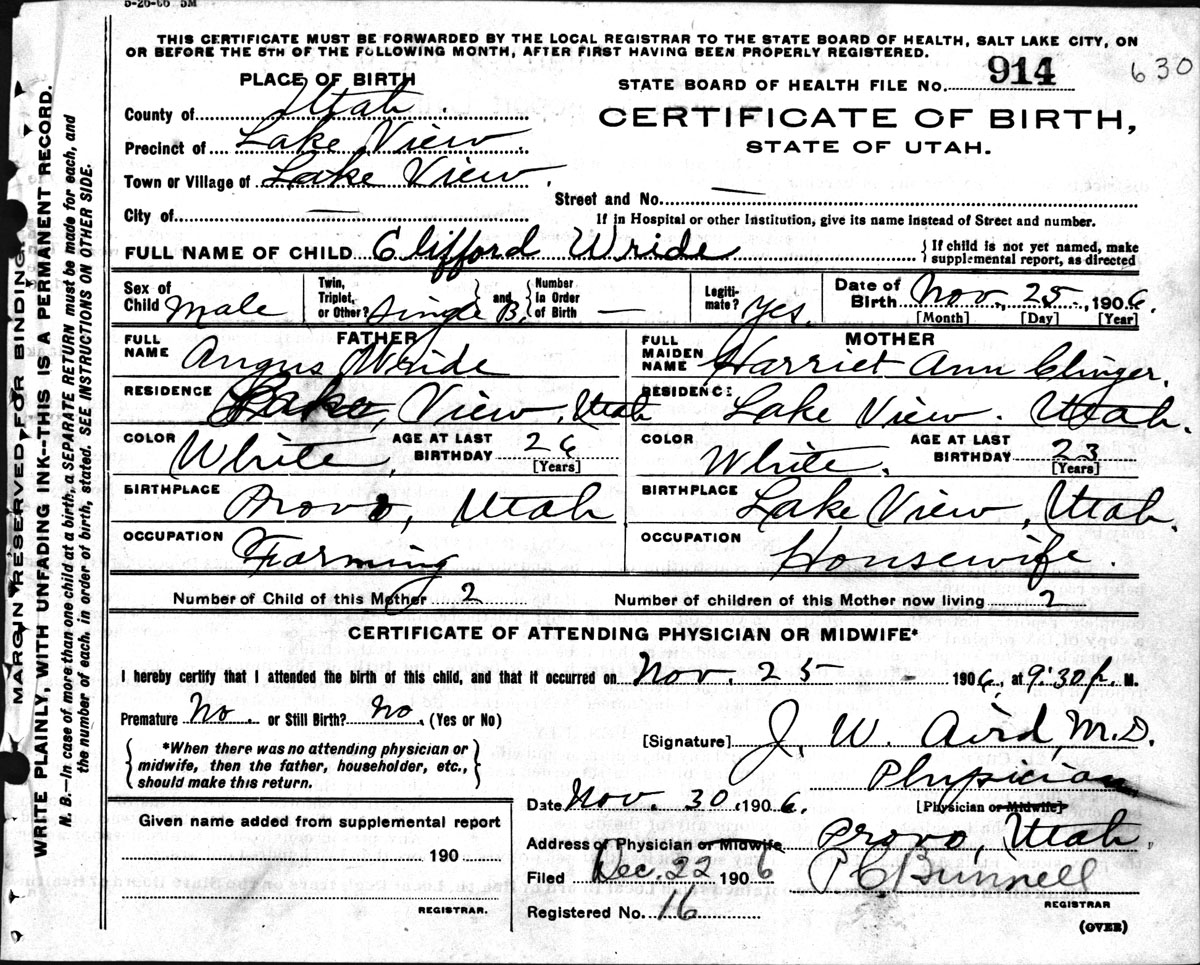 5-26-06 5M
THIS CERTIFICATE MUST BE FORWARDED BY THE LOCAL REGISTRAR TO THE STATE BOARD OF HEALTH, SALT LAKE CITY, ON
OR BEFORE THE 5TH OF THE FOLLOWING MONTH, AFTER FIRST HAVING BEEN PROPERLY REGISTERED.
PLACE OF BIRTH
STATE BOARD OF HEALTH FILE No. 914 630
County of Utah
CERTIFICATE OF BIRTH,
Precinct of Lake View.
STATE OF UTAH.
Town or Village of Lake View.
Street and No. —
City of —
If in Hospital or other Institution, give its name instead of Street and number.
FULL NAME OF CHILD Clifford Wride
{ If child is not yet named, make supplemental report, as directed
Sex of Child Male
Twin, Triplet, or Other? Single B. } and { Number In Order of Birth —
Legiti-mate? Yes.
Date of Birth Nov. 25., 1906.
[Month] [Day] [Year]
FATHER
FULL NAME Angus Wride
RESIDENCE Lake, View, Utah
COLOR White. AGE AT LAST BIRTHDAY 26 [Years]
BIRTHPLACE Provo, Utah
OCCUPATION Farming
MOTHER
FULL MAIDEN NAME Harriet Ann Clinger.
RESIDENCE Lake View. Utah.
COLOR White. AGE AT LAST BIRTHDAY 23 [Years]
BIRTHPLACE Lake View, Utah.
OCCUPATION Housewife.
Number of Child of this Mother 2 Number of children of this Mother now living 2
CERTIFICATE OF ATTENDING PHYSICIAN OR MIDWIFE*
I hereby certify that I attended the birth of this child, and that it occurred on Nov. 25 - 1906, at 9:30 p. M.
Premature No. or Still Birth? No. (Yes or No)
{ *When there was no attending physician or midwife, then the father, householder, etc., should make this return. }
[Signature] J. W. Aird, M.D.
Physician
[Physician or Midwife]
Date Nov. 30, 1906.
Address of Physician or Midwife Provo, Utah.
Filed Dec. 22 1906 P C Bunnell
REGISTRAR
Registered No. 16
(OVER)
Given name added from supplemental report
190
REGISTRAR.
MARGIN RESERVED FOR BINDING.
WRITE PLAINLY, WITH UNFADING INK--THIS IS A PERMANENT RECORD.
N. B.—In case of more than one child at a birth, a SEPARATE RETURN must be made for each, and
the number of each, in order of birth, stated. SEE INSTRUCTIONS ON OTHER SIDE.